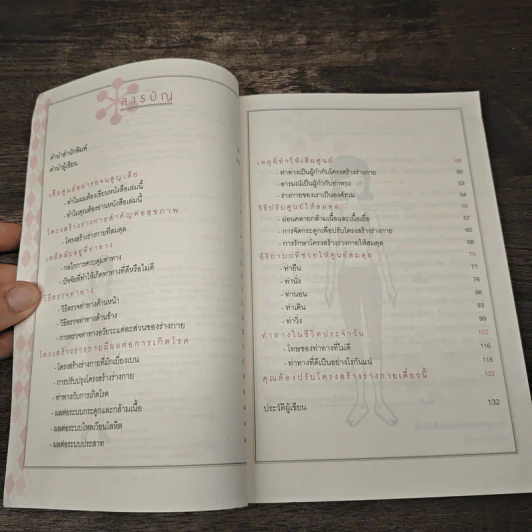 สารบัญ
คำนำสำนักพิมพ์
คำนำผู้เขียน
เสียศูนย์อย่ารอจนสูญเสีย
- ทำไมผมต้องเขียนหนังสือเล่มนี้
- ทำไมคุณต้องอ่านหนังสือเล่มนี้
โครงสร้างร่างกายสำคัญต่อสุขภาพ
- โครงสร้างร่างกายที่สมดุล
เคล็ดลับอยู่ที่ท่าทาง
- กลไกการควบคุมท่าทาง
- ปัจจัยที่ทำให้เกิดท่าทางที่ดีหรือไม่ดี
วิธีตรวจท่าทาง
- วิธีตรวจท่าทางด้านหน้า
- วิธีตรวจท่าทางด้านข้าง
- การตรวจท่าทางอวัยวะแต่ละส่วนของร่างกาย
โครงสร้างร่างกายมีผลต่อการเกิดโรค
- โครงสร้างร่างกายที่มักเบี่ยงเบน
- การปรับปรุงโครงสร้างร่างกาย
- ท่าทางกับการเกิดโรค
- ผลต่อระบบกระดูกและกล้ามเนื้อ
- ผลต่อระบบไหลเวียนโลหิต
- ผลต่อระบบประสาท
เหตุที่ทำให้เสียศูนย์
- ท่าทางเป็นผู้กำกับโครงสร้างร่างกาย
- อารมณ์เป็นผู้กำกับท่าทาง 53
- ร่างกายของเราเป็นองค์รวม 54
วิธีปรับศูนย์ให้สมดุล
- ผ่อนคลายกล้ามเนื้อและเนื้อเยื่อ
- การจัดกระดูกเพื่อปรับโครงสร้างร่างกาย
- การรักษาโครงสร้างร่างกายให้สมดุล
อิริยาบถที่ช่วยให้ศูนย์สมดุล 70
- ท่ายืน 71
- ท่านั่ง 76
- ท่านอน 86
- ท่าเดิน 93
- ท่าวิ่ง 99
ท่าทางในชีวิตประจำวัน 102
- โทษของท่าทางที่ไม่ดี 116
- ท่าทางที่ดีเป็นอย่างไรกันแน่ 118
คุณต้องปรับโครงสร้างร่างกายเดี๋ยวนี้ 122
ประวัติผู้เขียน 132